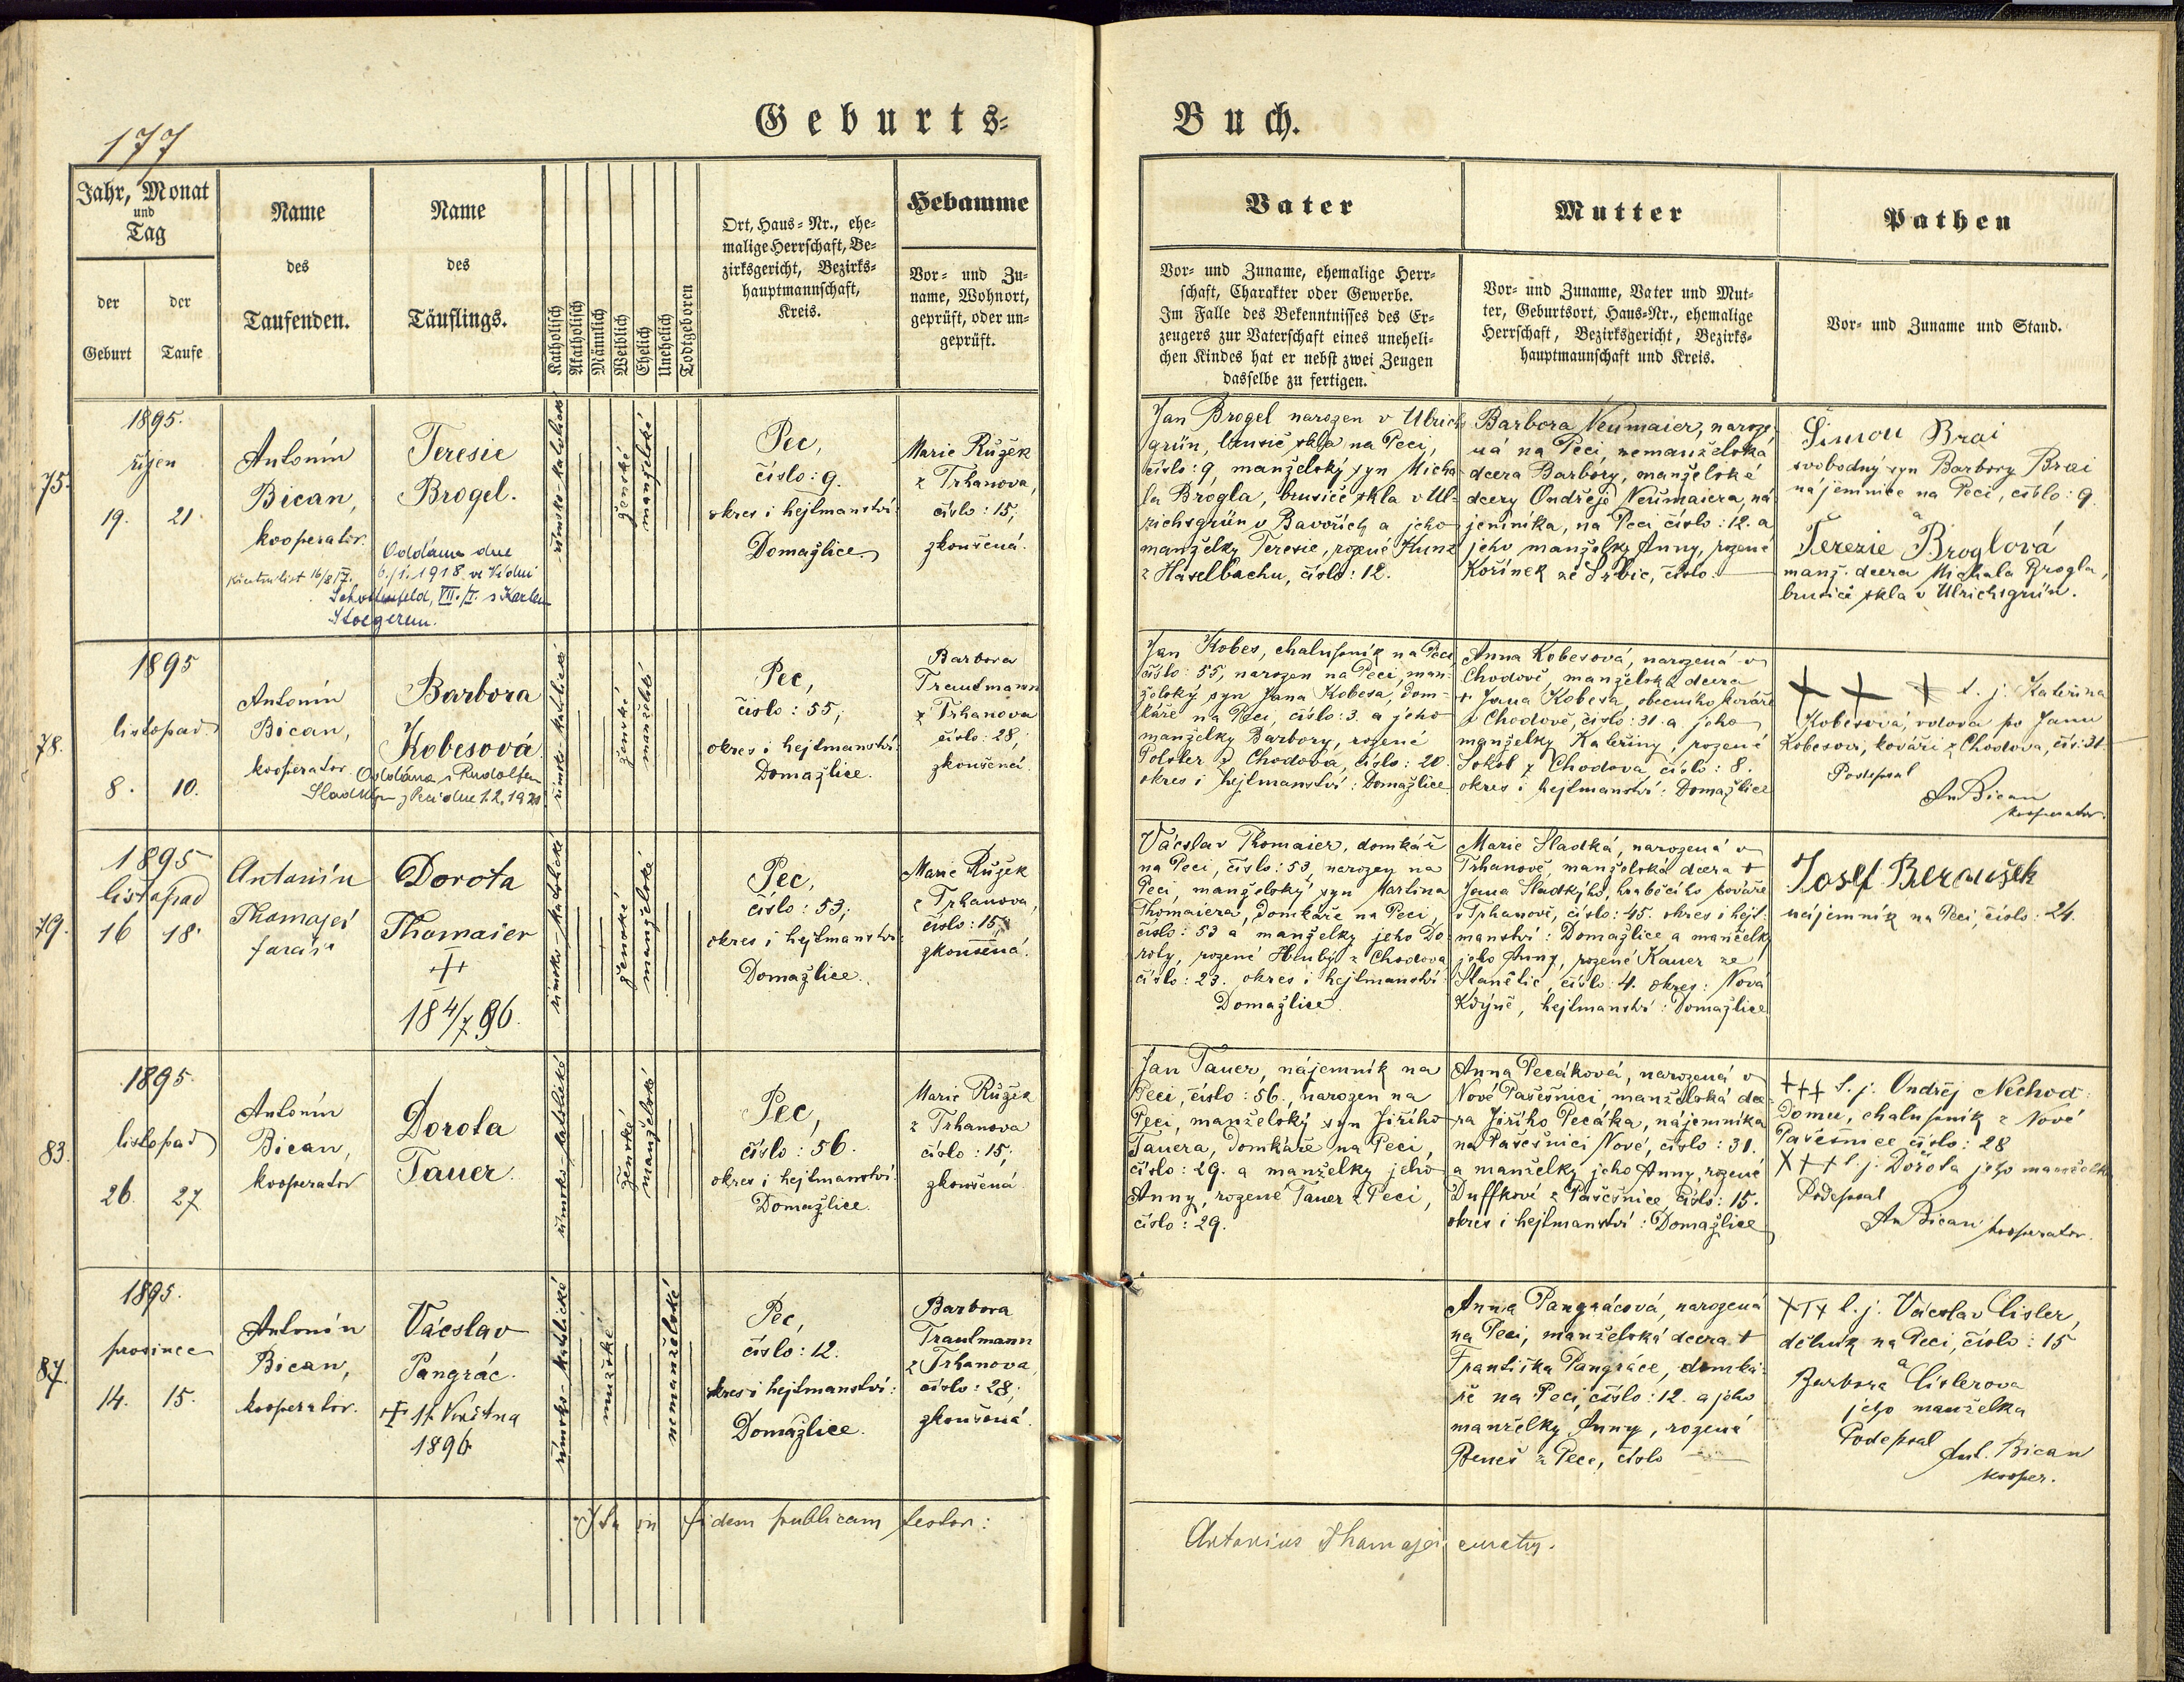 177
Geburts-
Buch.
Jahr, Monat
und
Tag
der
Geburt
der
Taufe
Name
des
Taufenden.
Name
des
Täuflings.
Katholisch
Akatholisch
Männlich
Weiblich
Ehelich
Unehelich
Todtgeboren
Ort, Haus-Nr., ehe-
malige Herrschaft, Be-
zirksgericht, Bezirks-
hauptmannschaft,
Kreis.
Hebamme
Vor- und Zu-
name, Wohnort,
geprüft, oder un-
geprüft.
Vater
Vor- und Zuname, ehemalige Herr-
schaft, Charakter oder Gewerbe.
Im Falle des Bekenntnisses des Er-
zeugers zur Vaterschaft eines uneheli-
chen Kindes hat er nebst zwei Zeugen
dasselbe zu fertigen.
Mutter
Vor- und Zuname, Vater und Mut-
ter, Geburtsort, Haus-Nr., ehemalige
Herrschaft, Bezirksgericht, Bezirks-
hauptmannschaft und Kreis.
Pathen
Vor- und Zuname und Stand.
75.
1895.
říjen
19. 21.
Antonín
Bican,
kooperator.
Teresie
Brogel.
Oddána dne
6./1. 1918 ve Vídni
Schottenfeld, VII./I. s Karlem
Stoegerem.
římsko-katolické
ženské
manželské
Pec,
číslo: 9.
okres i hejtmanství:
Domažlice
Marie Růžek
z Trhanova,
číslo: 15,
zkoušená.
Jan Brogel narozen v Ulrichs
grün, brusič skla na Peci,
číslo: 9, manželský syn Micha
la Brogla, brusiče skla v Ul-
richsgrün v Bavořích a jeho
manželky Teresie, rozené Kunz
z Haselbachu, číslo: 12.
Barbora Neumaier, naroze-
ná na Peci, nemanželská
dcera Barbory, manželské
dcery Ondřeje Neumaiera, ná
jemníka, na Peci, číslo: 12. a
jeho manželky Anny, rozené
Kořínek ze Srbic, číslo:
Šimon Brai
svobodný syn Barbory Brai
nájemnice na Peci, číslo: 9.
a
Terezie Broglová
manž. dcera Michala Brogla,
brusiče skla v Ulrichsgrün.
78.
1895
listopad
8. 10.
Antonín
Bican,
kooperator
Barbora
Kobesová
Oddána s Rudolfem
Sladkým z Peci dne 1.2.1920
římsko-katolické
ženské
manželské
Pec,
číslo: 55;
okres i hejtmanství:
Domažlice.
Barbora
Trautmann
z Trhanova
číslo: 28,
zkoušená.
Jan Kobes, chalupník na Peci
číslo: 55, narozen na Peci, man-
želský syn Jana Kobesa, dom-
káře na Peci, číslo: 3. a jeho
manželky Barbory, rozené
z Chodova, číslo: 20.
okres i hejtmanství: Domažlice
Anna Kobesová, narozená v
Chodově, manželská dcera
† Jana Kobesa, obecního kováře
v Chodově, číslo: 31. a jeho
manželky Kateřiny, rozené
Sokol z Chodova číslo: 8.
okres i hejtmanství: Domažlice
+ + + t. j. Kateřina
Kobesová, vdova po Janu
Kobesovi, kováři z Chodova, čís: 31.
Podepsal
An Bican
kooperator.
79.
1895
listopad
16 18.
Antonín
Thomayer
farář
Dorota
Thomaier
+
18 4/7 96.
římsko-katolické
ženské
manželské
Pec,
číslo: 53;
okres i hejtmanství:
Domažlice.
Marie Růžek
z Trhanova,
číslo: 15,
zkoušená.
Václav Thomaier, domkář
na Peci, číslo: 53, narozen na
Peci, manželský syn Martina
Thomaiera, domkáře na Peci,
číslo: 53 a manželky jeho Do
roty, rozené Hlubý z Chodova
číslo: 23. okres i hejtmanství:
Domažlice.
Marie Sladká, narozená v
Trhanově, manželská dcera †
Jana Sladkýho, hraběcího kováře
v Trhanově, číslo: 45. okres i hejt-
manství: Domažlice a manželky
jeho Anny, rozené Kauer ze
Stanětic, číslo: 4. okres: Nová
Kdyně, hejtmanství: Domažlice
Josef Beroušek
nájemník na Peci, číslo: 24.
83.
1895.
listopad
26. 27
Antonín
Bican,
kooperator
Dorota
Tauer.
římsko-katolické
ženské
manželské
Pec,
číslo: 56.
okres i hejtmanství:
Domažlice.
Marie Růžek
z Trhanova
číslo: 15;
zkoušená.
Jan Tauer, nájemník na
Peci, číslo: 56., narozen na
Peci, manželský syn Jiřího
Tauera, domkáře na Peci,
číslo: 29. a manželky jeho
Anny, rozené Tauer z Peci,
číslo: 29.
Anna Pecáková, narozená v
Nové Pasečnici, manželská dce-
ra Jiřího Pecáka, nájemníka
na Pasečnici Nové, číslo: 31.
a manželky jeho Anny, rozené
Duffkové z Pasečnice číslo: 15.
okres i hejtmanství: Domažlice
+++ t. j. Ondřej Nechod-
domu, chalupník z Nové
Pasečnice číslo: 28
+++ t. j. Dorota jeho manželka
Podepsal
An Bican kooperator.
87.
1895.
prosinec
14. 15.
Antonín
Bican,
kooperator.
Václav
Pangrác.
+ 11. Května
1896
římsko-katolické
mužské
nemanželské
Pec,
číslo: 12.
okres i hejtmanství:
Domažlice.
Barbora
Trautmann
z Trhanova
číslo: 28,
zkoušená.
Anna Pangrácová, narozená
na Peci, manželská dcera †
Františka Pangráce, domká-
ře na Peci, číslo: 12. a jeho
manželky Anny, rozená
Beneš z Pece, číslo
+++ t. j. Václav Cisler,
dělník na Peci, číslo: 15
a
Barbora Cislerova
jeho manželka
Podepsal
Ant. Bican
kooper.
Ita in fidem publicam testor:
Antonius Thomayer, curatus.